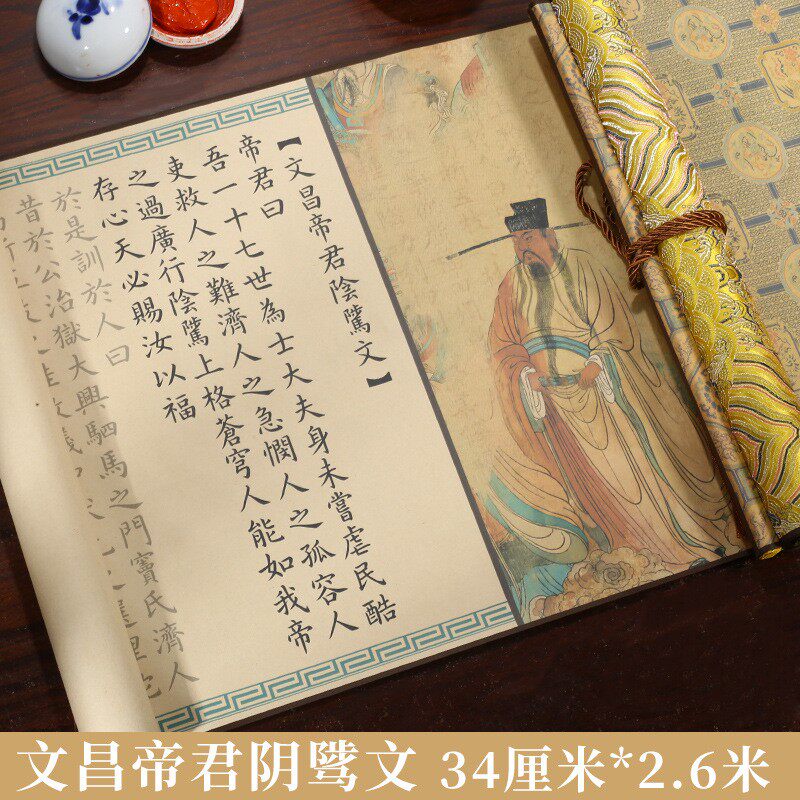 【文昌帝君陰騭文】
帝君曰
吾一十七世為士大夫身未嘗虐民酷
吏救人之難濟人之急憫人之孤容人
之過廣行陰騭上格蒼穹人能如我帝
存心天必賜汝以福
於是訓於人曰
昔於公治獄大興駟馬之門竇氏濟人
文昌帝君阴骘文 34厘米*2.6米